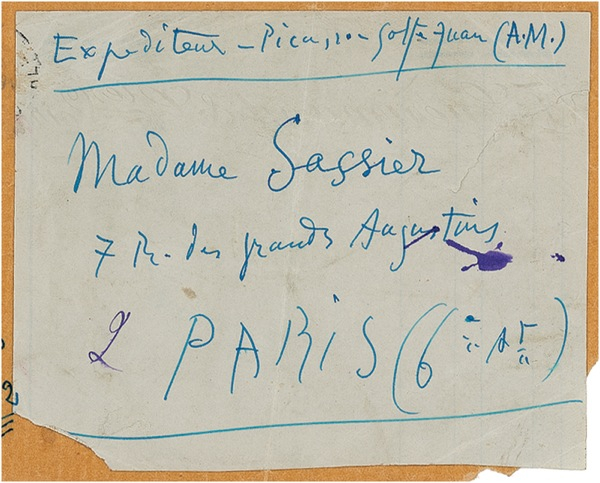 Expediteur - Picasso - Golfe Juan (A.M.)
Madame Sassier
7 R. des grands Augustins
2 PARIS (6ème Art)
2